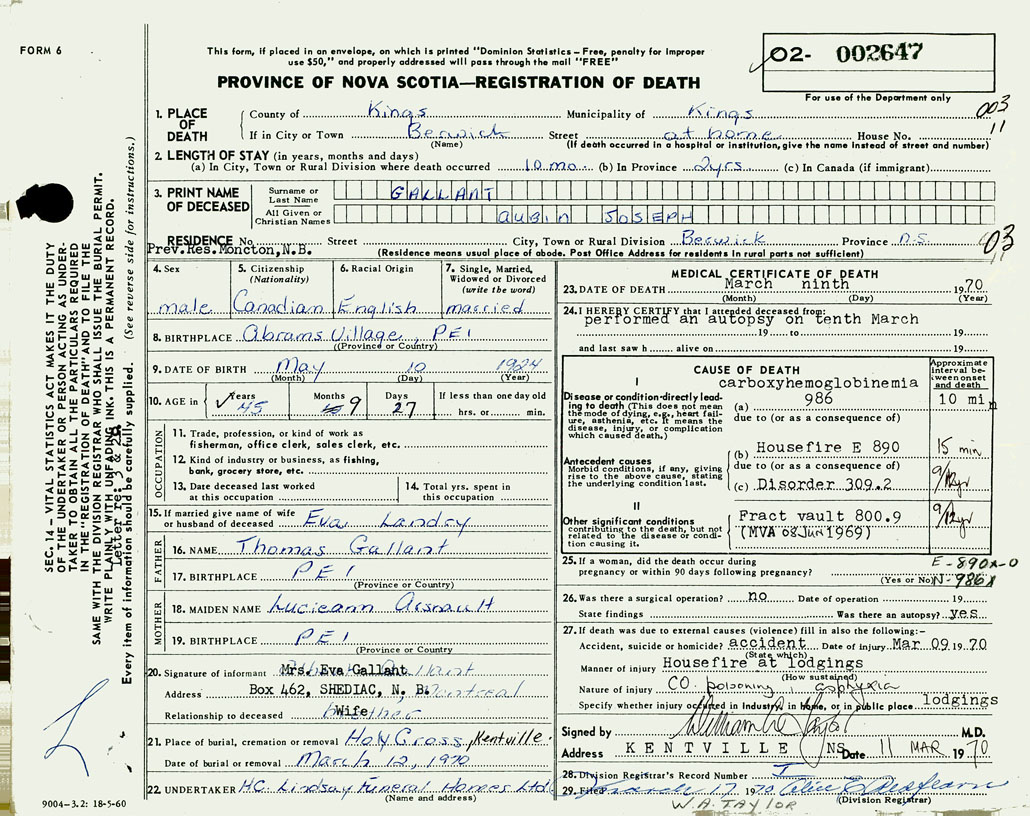 FORM 6
This form, if placed in an envelope, on which is printed "Dominion Statistics – Free, penalty for improper
use $50," and properly addressed will pass through the mail "FREE"
PROVINCE OF NOVA SCOTIA—REGISTRATION OF DEATH
02- 002647
For use of the Department only
003
11
1. PLACE OF DEATH
County of Kings Municipality of Kings
If in City or Town Berwick Street at home House No.
(Name) (If death occurred in a hospital or institution, give the name instead of street and number)
2. LENGTH OF STAY (in years, months and days)
(a) In City, Town or Rural Division where death occurred 10 mo. (b) In Province 2 yrs. (c) In Canada (if immigrant)
3. PRINT NAME OF DECEASED
Surname or Last Name GALLANT
All Given or Christian Names AUBIN JOSEPH
RESIDENCE No. Street City, Town or Rural Division Berwick Province N.S.
Prev.Res.Moncton,N.B. (Residence means usual place of abode. Post Office Address for residents in rural parts not sufficient)
03
11
4. Sex
male
5. Citizenship
(Nationality)
Canadian
6. Racial Origin
English
7. Single, Married, Widowed or Divorced
(write the word)
married
8. BIRTHPLACE Abrams Village, PEI
(Province or Country)
9. DATE OF BIRTH May 10 1924
(Month) (Day) (Year)
10. AGE in Years 45 Months 9 Days 27 If less than one day old
hrs. or min.
OCCUPATION
11. Trade, profession, or kind of work as
fisherman, office clerk, sales clerk, etc.
12. Kind of industry or business, as fishing,
bank, grocery store, etc.
13. Date deceased last worked
at this occupation
14. Total yrs. spent in
this occupation
15. If married give name of wife
or husband of deceased Eva Landry
FATHER
16. NAME Thomas Gallant
17. BIRTHPLACE PEI
(Province or Country)
MOTHER
18. MAIDEN NAME Lucieann Arsnault
19. BIRTHPLACE PEI
(Province or Country)
20. Signature of informant Mrs. Eva Gallant
Address Box 462, SHEDIAC, N. B. Montreal
Relationship to deceased Wife brother
21. Place of burial, cremation or removal Holy Cross, Kentville.
Date of burial or removal March 12, 1970
22. UNDERTAKER H.C. Lindsay Funeral Homes Ltd
(Name and address)
MEDICAL CERTIFICATE OF DEATH
23. DATE OF DEATH March ninth 1970
(Month) (Day) (Year)
24. I HEREBY CERTIFY that I attended deceased from:
performed an autopsy on tenth March
19 to 19
and last saw h alive on 19
CAUSE OF DEATH
Approximate interval between onset and death
I
Disease or condition directly leading to death (This does not
mean the mode of dying, e.g., heart failure,
asthenia, etc. It means the
disease, injury, or complication
which caused death.)
carboxyhemoglobinemia
(a) 986 10 min
due to (or as a consequence of)
Antecedent causes
Morbid conditions, if any, giving
rise to the above cause, stating
the underlying condition last.
(b) Housefire E 890 15 min
due to (or as a consequence of)
(c) Disorder 309.2 9/12yr
II
Other significant conditions
contributing to the death, but not
related to the disease or condition
causing it.
Fract vault 800.9 9/12yr
(MVA 08Jun1969)
25. If a woman, did the death occur during
pregnancy or within 90 days following pregnancy?
(Yes or No)
E-890X-0
N-986X
26. Was there a surgical operation? no Date of operation 19
State findings Was there an autopsy? yes
27. If death was due to external causes (violence) fill in also the following:–
Accident, suicide or homicide? accident Date of injury Mar 09 1970
(State which)
Manner of injury Housefire at lodgings
(How sustained)
Nature of injury CO poisoning, asphyxia
Specify whether injury occurred in Industry, in home, or in public place lodgings
Signed by William A. Taylor M.D.
Address KENTVILLE NS Date 11 MAR 1970
28. Division Registrar's Record Number
29. Filed March 17 1970 Alice E.
(Division Registrar)
W.A. TAYLOR
SEC. 14 – VITAL STATISTICS ACT MAKES IT THE DUTY
OF THE UNDERTAKER OR PERSON ACTING AS UNDERTAKER
TO OBTAIN ALL THE PARTICULARS REQUIRED
IN THE "REGISTRATION OF DEATH" AND TO FILE THE
SAME WITH THE DIVISION REGISTRAR WHO SHALL ISSUE THE BURIAL PERMIT.
WRITE PLAINLY WITH UNFADING INK. THIS IS A PERMANENT RECORD.
Letter re: 3 & 20
Every item of information should be carefully supplied. (See reverse side for instructions.)
9004–3.2: 18-5-60